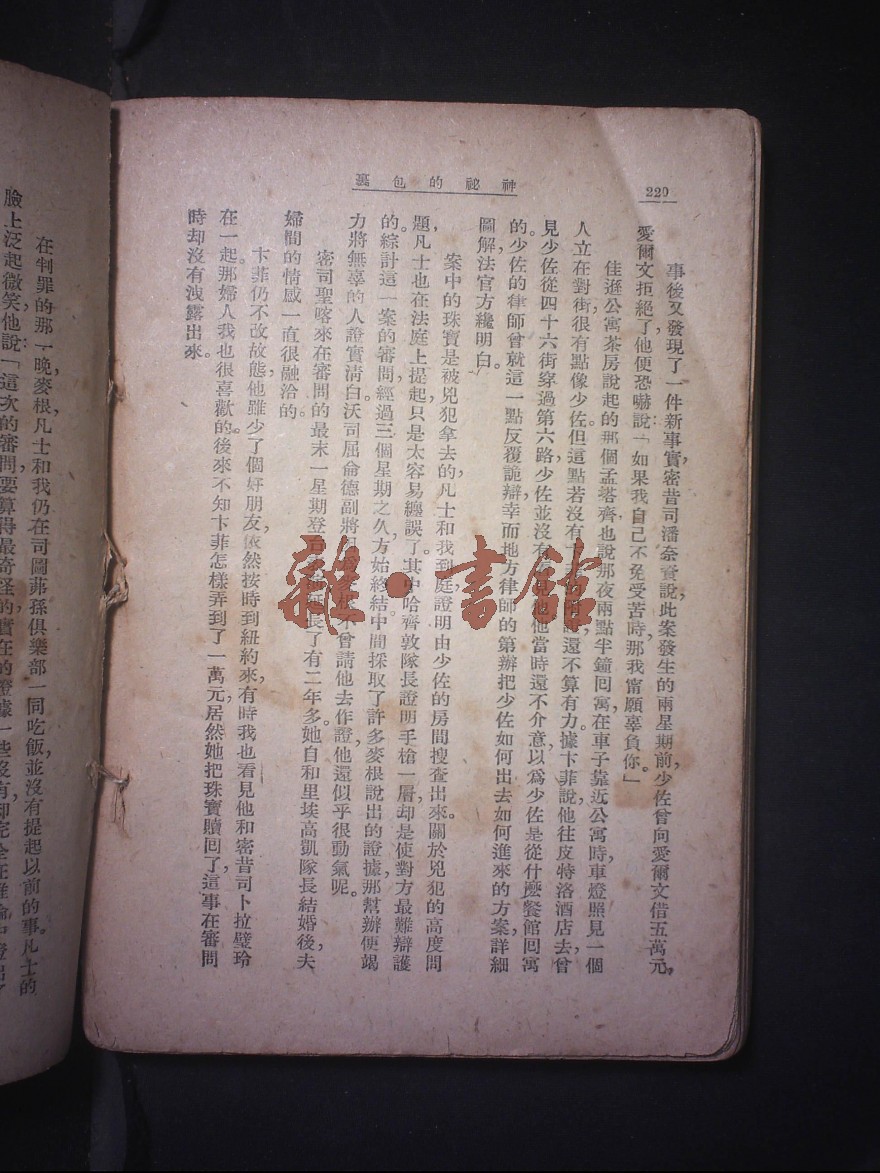 神祕的包裹
220
事後又發現了一件新事實密昔司潘奈實說此案發生的兩星期前少佐曾向愛爾文借五萬元，
愛爾文拒絕了他便恐嚇說「如果我自己不免受苦時那我甯願辜負你。」
佳遜公寓茶房說起的那個孟塔齊也說那夜兩點半鐘回寓在車子靠近公寓時車燈照見一個
人立在對街很有點像少佐但這點若沒有卞菲的 還不算有力。據卞菲說他往皮特洛酒店去曾
見少佐從四十六街穿過第六路少佐並沒有看見他他當時還不介意以爲少佐是從什麽餐館回寓
的。少佐的律師曾就這一點反覆詭辯幸而地方律師的第辦把少佐如何出去如何進來的方案詳細
圖解法官方纔明白。
案中的珠寶是被兇犯拿去的凡士和我到庭證明由少佐的房間搜查出來。關於兇犯的高度問
題凡士也在法庭上提起只是太容易纏誤了。其中哈齊敦隊長證明手槍一層却是使對方最難辯護
的。綜計這一案的審問經過三個星期之久方始終結中間採取了許多麥根說出的證據那幫辦便竭
力將無辜的人證實淸白沃司屈侖德副將因爲麥根不曾請他去作證他還似乎很動氣呢。
密司聖喀來在審問的最末一星期登台 延長了有二年多。她自和里埃高凱隊長結婚後夫
婦間的情感一直很融洽的。
卞菲仍不改故態他雖少了個好朋友依然按時到紐約來有時我也看見他和密昔司卜拉璧玲
在一起那婦人我也很喜歡的。後來不知卞菲怎樣弄到了一萬元居然她把珠寶贖回了這事在審問
時却沒有洩露出來。
在判罪的那一晚麥根凡士和我仍在司圖菲孫俱樂部一同吃飯並沒有提起以前的事。凡士的
臉上泛起微笑他說「這次的審問要算得最奇怪的實在的證據一些沒有却完全在推論
雜·書館